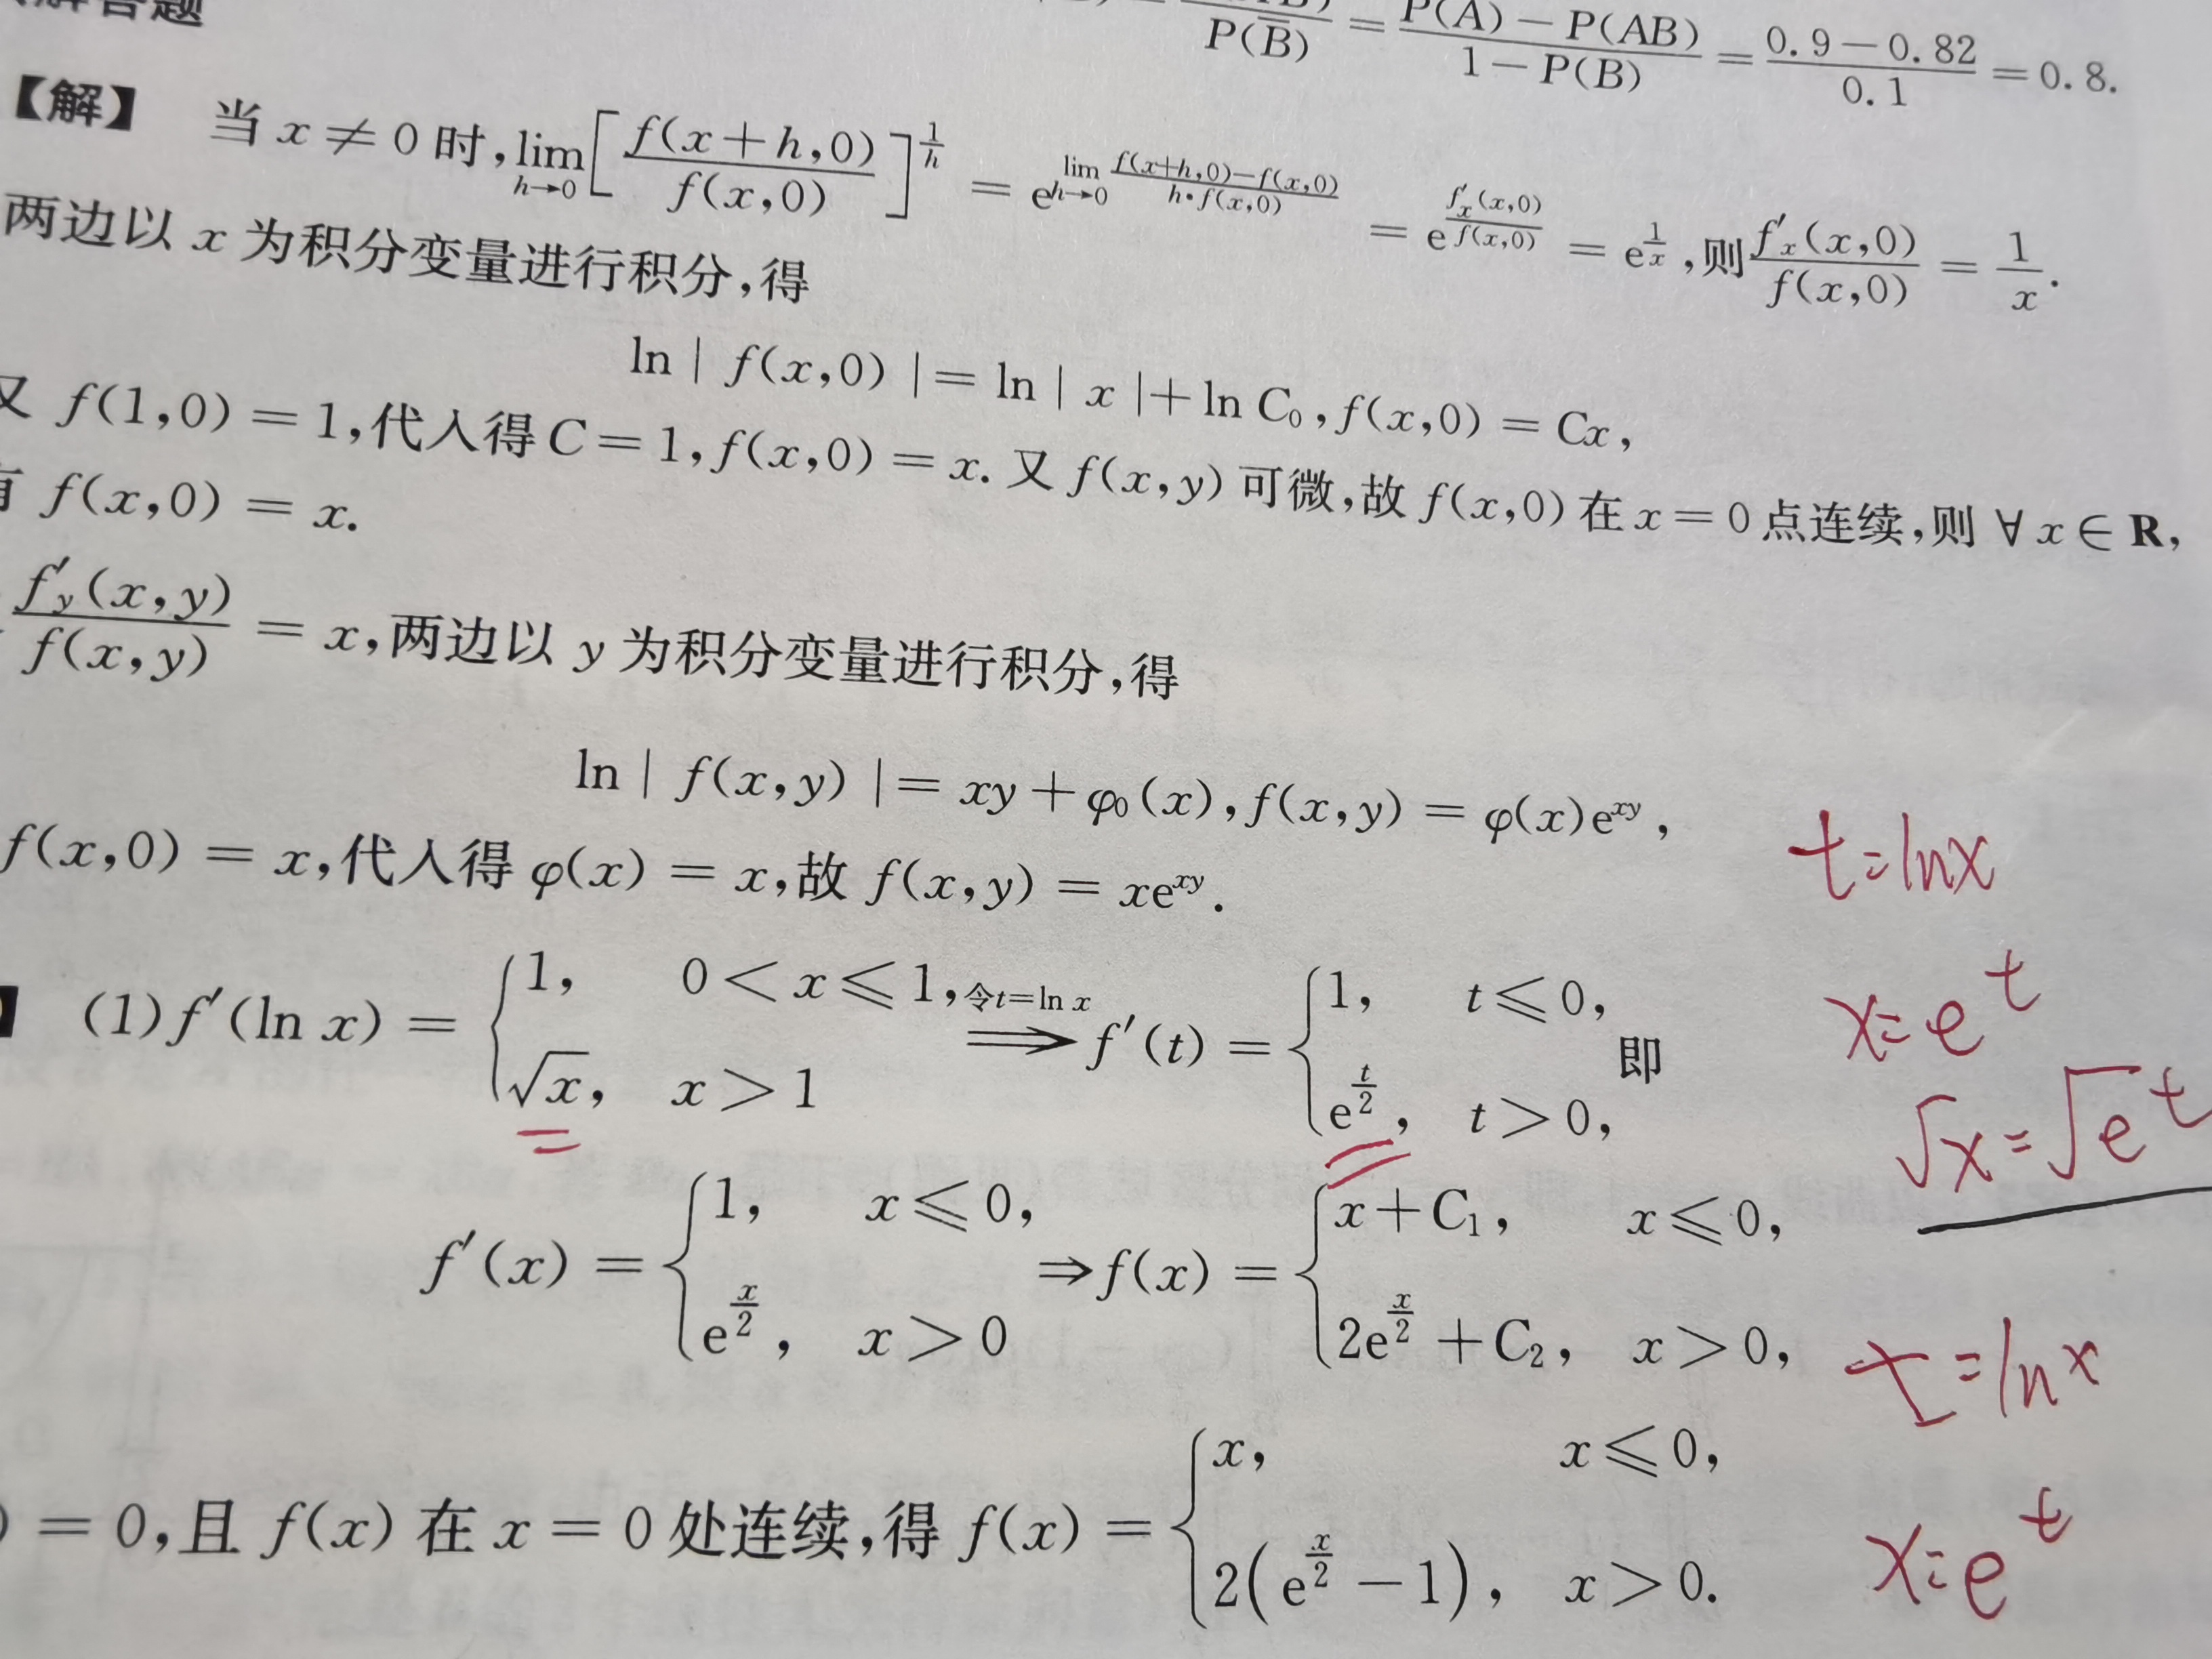 解答题
P(B̄) = P(A)－P(AB) / 1－P(B) = 0.9－0.82 / 0.1 = 0.8.
【解】 当 x ≠ 0 时, lim_{h→0} [f(x+h,0) / f(x,0)]^{1/h} = e^{lim_{h→0} (f(x+h,0)－f(x,0)) / (h·f(x,0))} = e^{f′ₓ(x,0) / f(x,0)} = e^{1/x}, 则 f′ₓ(x,0) / f(x,0) = 1/x.
两边以 x 为积分变量进行积分,得
ln | f(x,0) | = ln | x | + ln C₀, f(x,0) = Cx,
又 f(1,0) = 1,代入得 C = 1, f(x,0) = x. 又 f(x,y) 可微,故 f(x,0) 在 x = 0 点连续,则 ∀ x ∈ R,
有 f(x,0) = x.
f′_y(x,y) / f(x,y) = x,两边以 y 为积分变量进行积分,得
ln | f(x,y) | = xy + φ₀(x), f(x,y) = φ(x)e^{xy},
f(x,0) = x,代入得 φ(x) = x,故 f(x,y) = xe^{xy}.
t=lnx
(1) f′(ln x) = { 1, 0 < x ⩽ 1, √x, x > 1 ⟹(令t=ln x) f′(t) = { 1, t ⩽ 0, e^{t/2}, t > 0, 即
x=e^t
√x=√e^t
f′(x) = { 1, x ⩽ 0, e^{x/2}, x > 0 ⇒ f(x) = { x+C₁, x ⩽ 0, 2e^{x/2}+C₂, x > 0,
t=lnx
) = 0,且 f(x) 在 x = 0 处连续,得 f(x) = { x, x ⩽ 0, 2(e^{x/2}－1), x > 0.
x=e^t